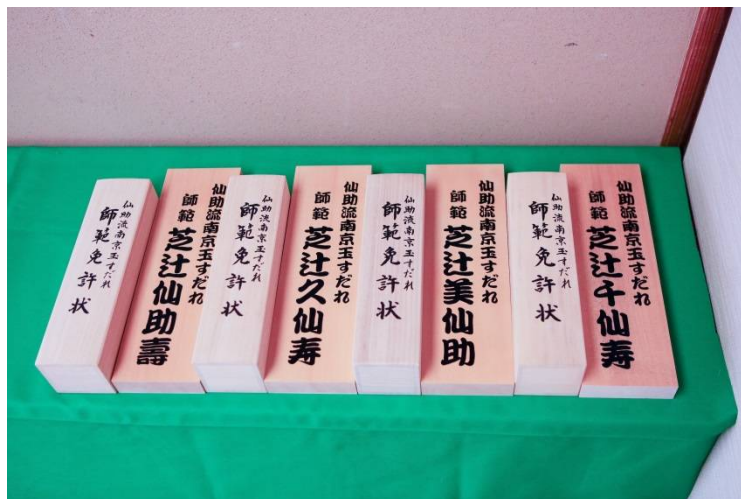 仙助流南京玉すだれ
師範免許状
仙助流南京玉すだれ
師範 芝辻仙助壽
仙助流南京玉すだれ
師範免許状
仙助流南京玉すだれ
師範 芝辻久仙寿
仙助流南京玉すだれ
師範免許状
仙助流南京玉すだれ
師範 芝辻美仙助
仙助流南京玉すだれ
師範免許状
仙助流南京玉すだれ
師範 芝辻千仙寿